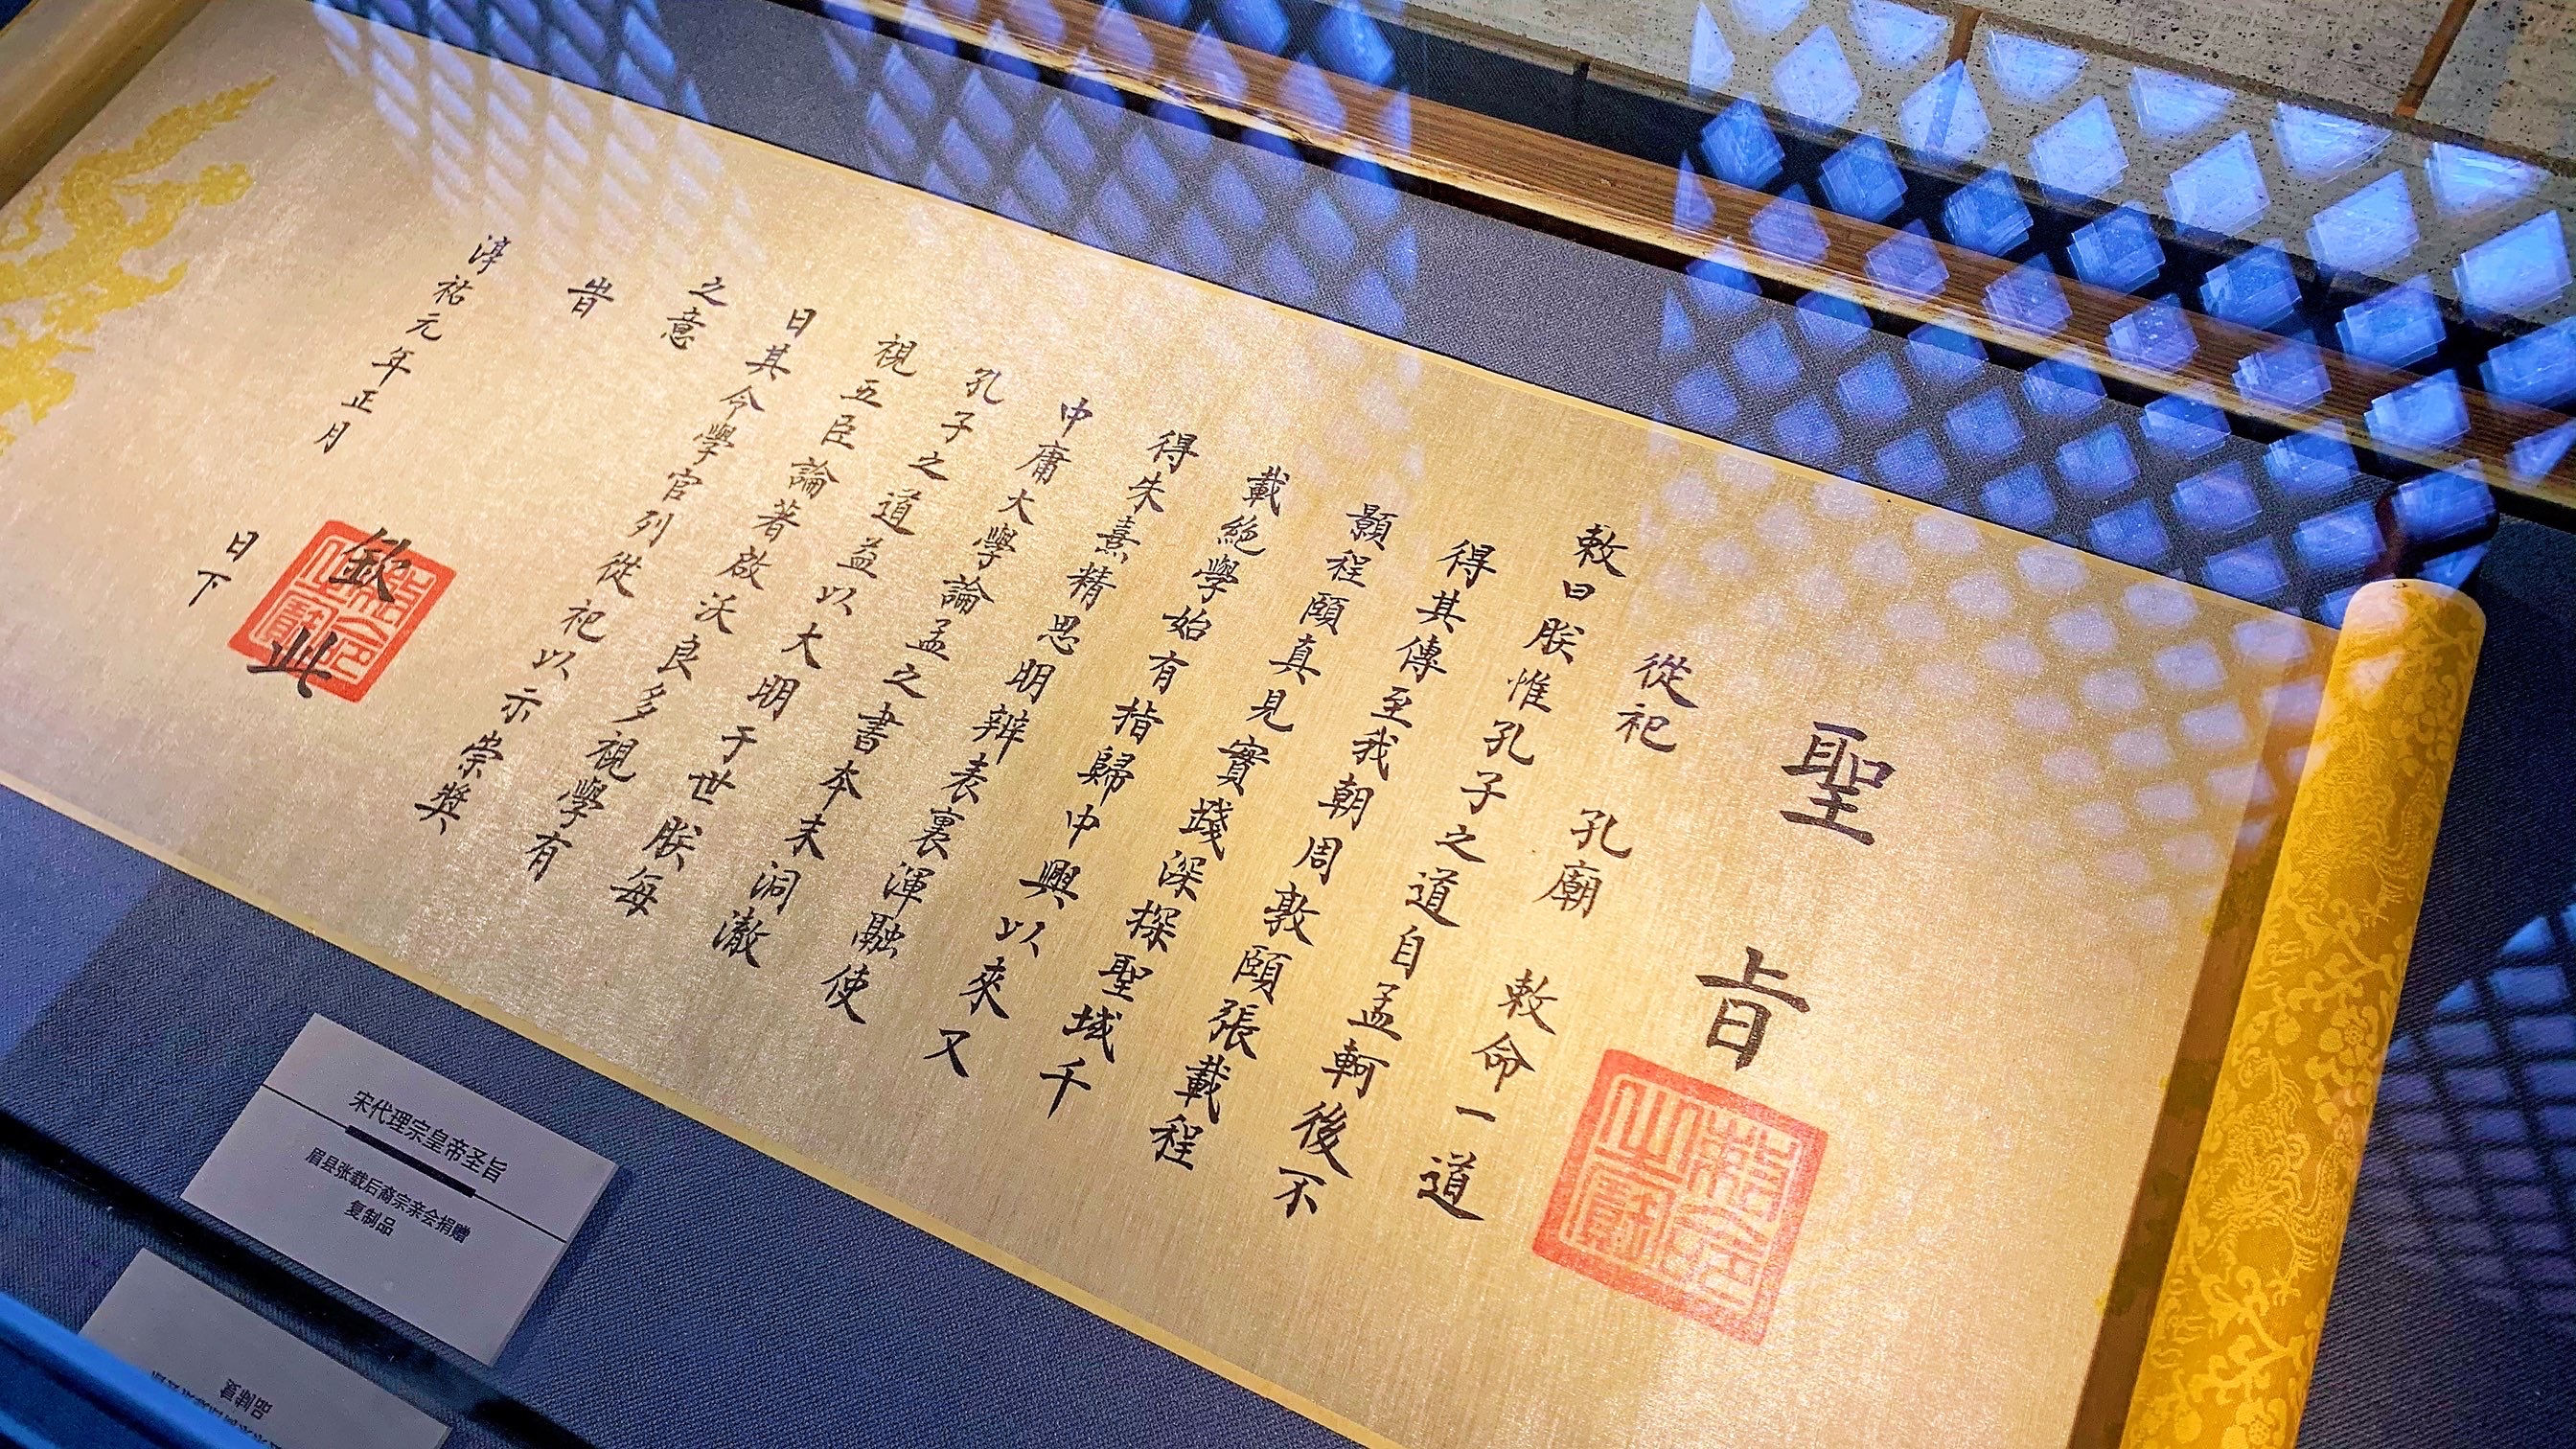 聖旨
從祀 孔廟 敕命一道
敕曰朕惟孔子之道自孟軻後不
得其傳至我朝周敦頤張載程
顥程頤真見實踐深探聖域千
載絶學始有指歸中興以來又
得朱熹精思明辨表裏渾融使
中庸大學論孟之書本末洞澈
孔子之道益以大明于世朕每
視五臣論著啟沃良多視學有
日其令學官列從祀以示崇獎
之意
旹
淳祐元年正月
日下
欽此
宋代理宗皇帝圣旨
眉县张载后裔宗亲会捐赠
复制品